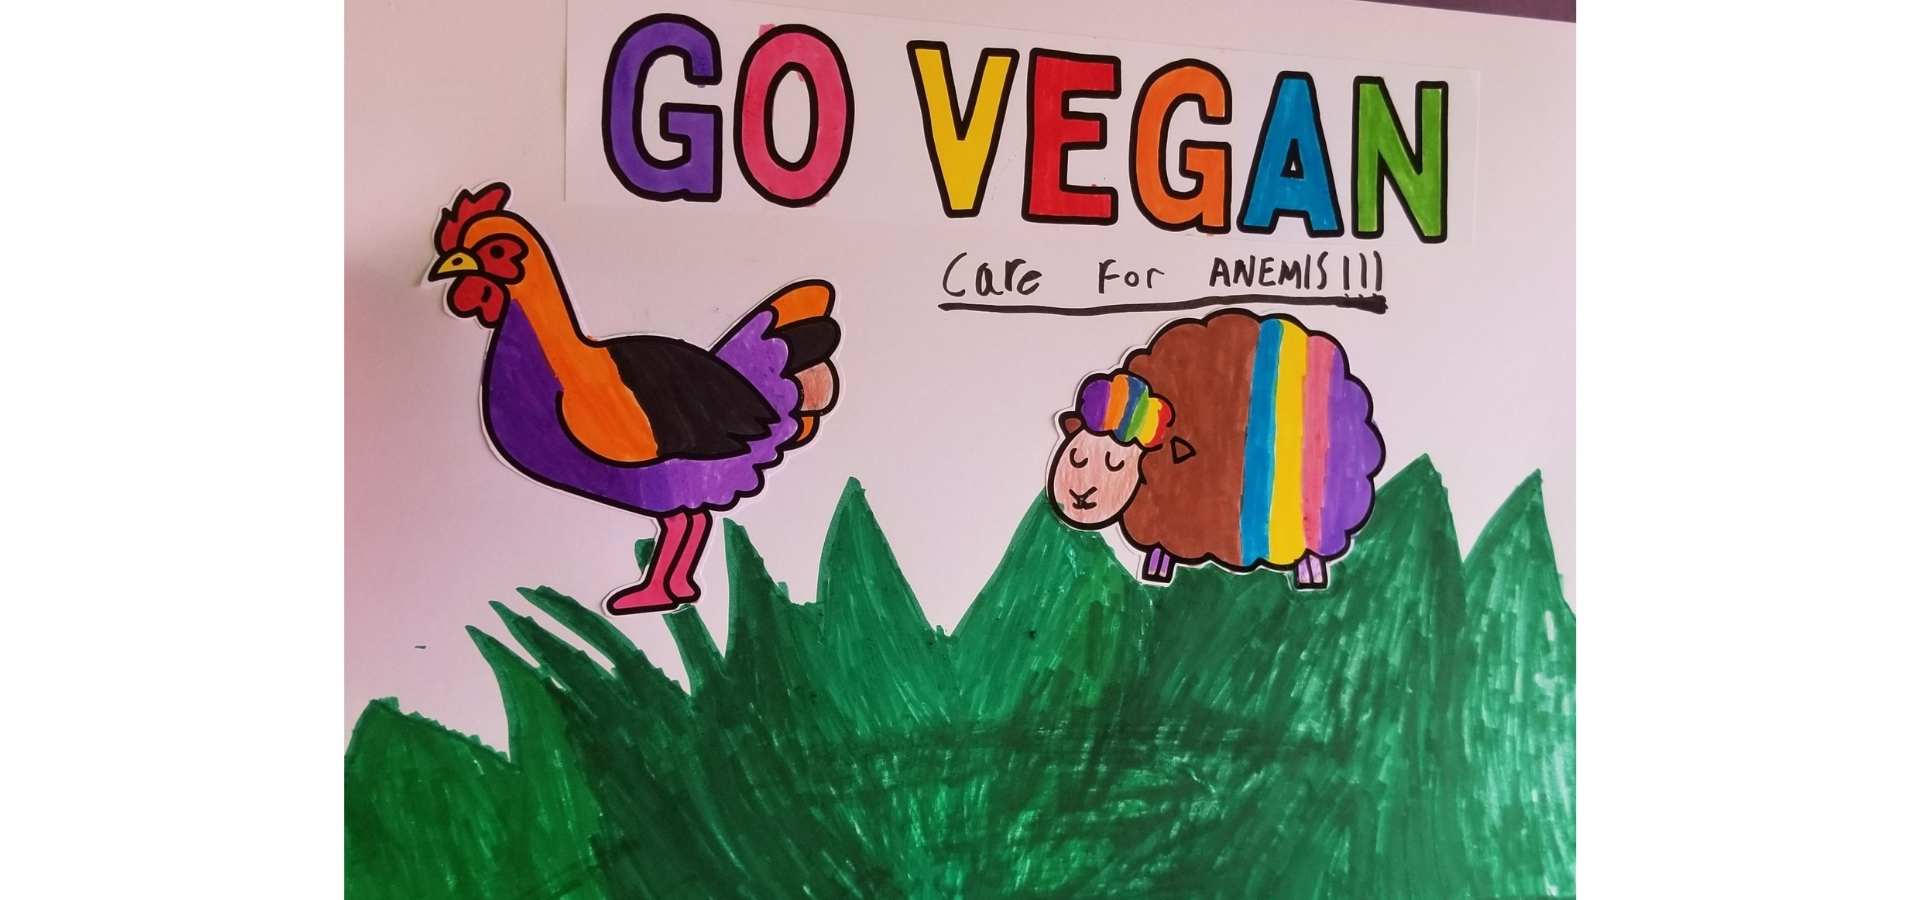 GO VEGAN
Care For ANEMIS!!!